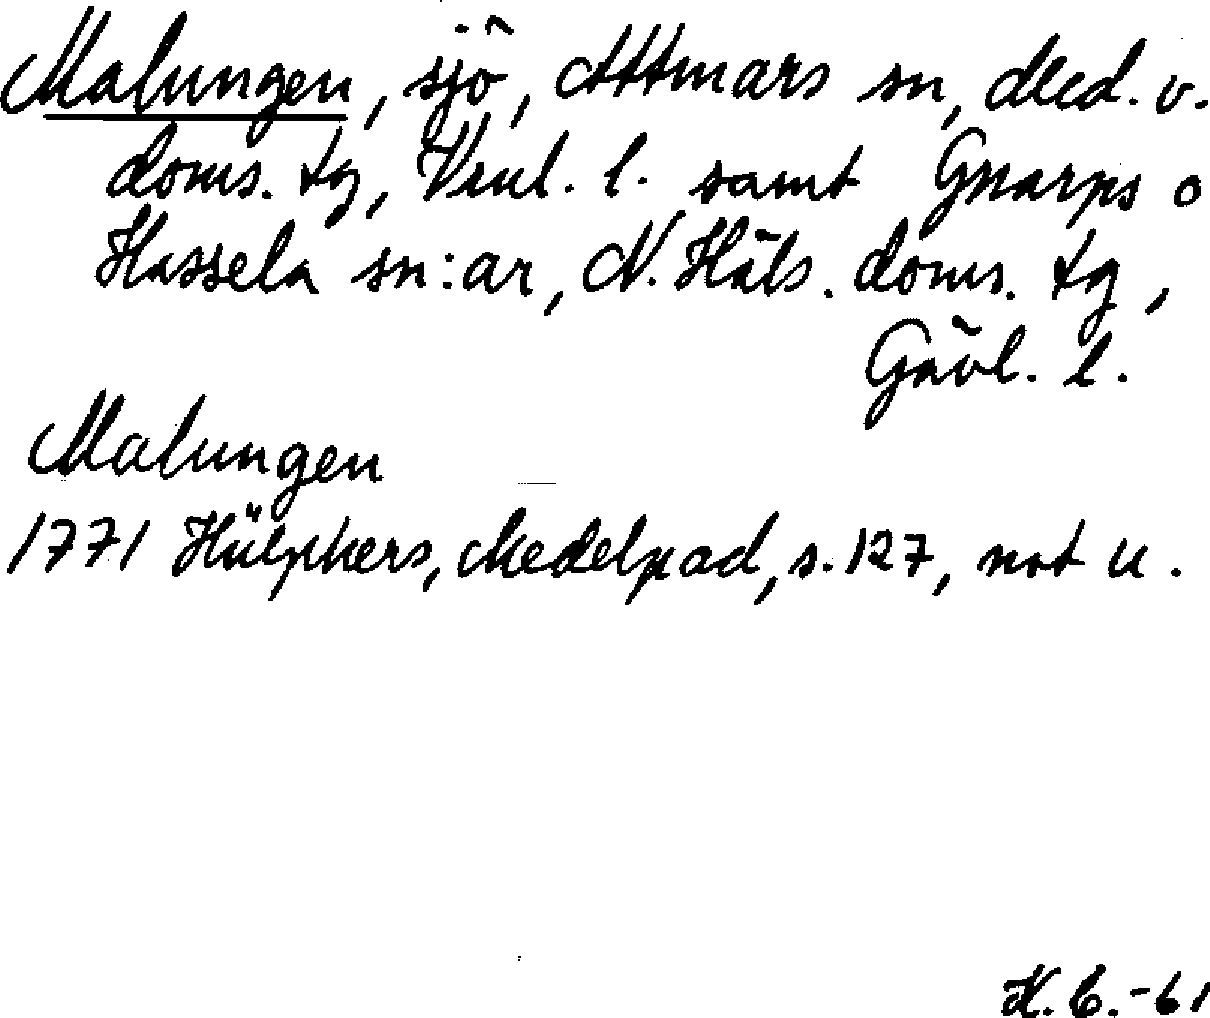 Malungen, sjö, Attmars sn, Med. v.
doms. tg, Vnl. l. samt Gnarps o
Hassela sn:ar, N. Häls. doms. tg,
Gävl. l.
Malungen
1771 Hülphers, Medelpad, s. 127, not u.
K. C. -61